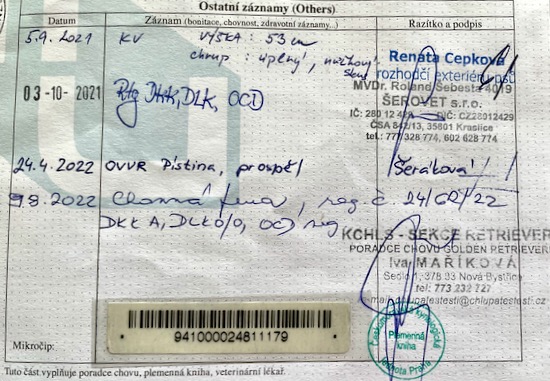 Ostatní záznamy (Others)
Datum Záznam (bonitace, chovnost, zdravotní záznamy...) Razítko a podpis
5.9.2021 KV VÝŠKA: 53 cm
chrup: úplný, nůžkový
skus
Renata Cepková
rozhodčí exteriéru psů
MVDr. Roland Šebesta 4019
ŠEROVET s.r.o.
03-10-2021 Rtg DKK, DLK, OCD
IČ: 280 12 429 DIČ: CZ28012429
ČSA 842/13, 35801 Kraslice
tel.: 777 328 774, 602 628 774
24.4.2022 OVVR Pístina, prospěl /Šeráková/
9.8.2022 Chovná fena, reg. č. 24/GR/22
DKK A, DLK 0/0, OCD neg
KCHLS - SEKCE RETRIEVER
PORADCE CHOVU GOLDEN RETRIEVER
Iva MAŘÍKOVÁ
Sedlo 1, 378 33 Nová Bystřice
tel: 773 232 727
e-mail: chlupatestesti@chlupatestesti.cz
941000024811179
Mikročip:
Českomoravská kynologická
jednota Praha
Plemenná
kniha
Tuto část vyplňuje poradce chovu, plemenná kniha, veterinární lékař.